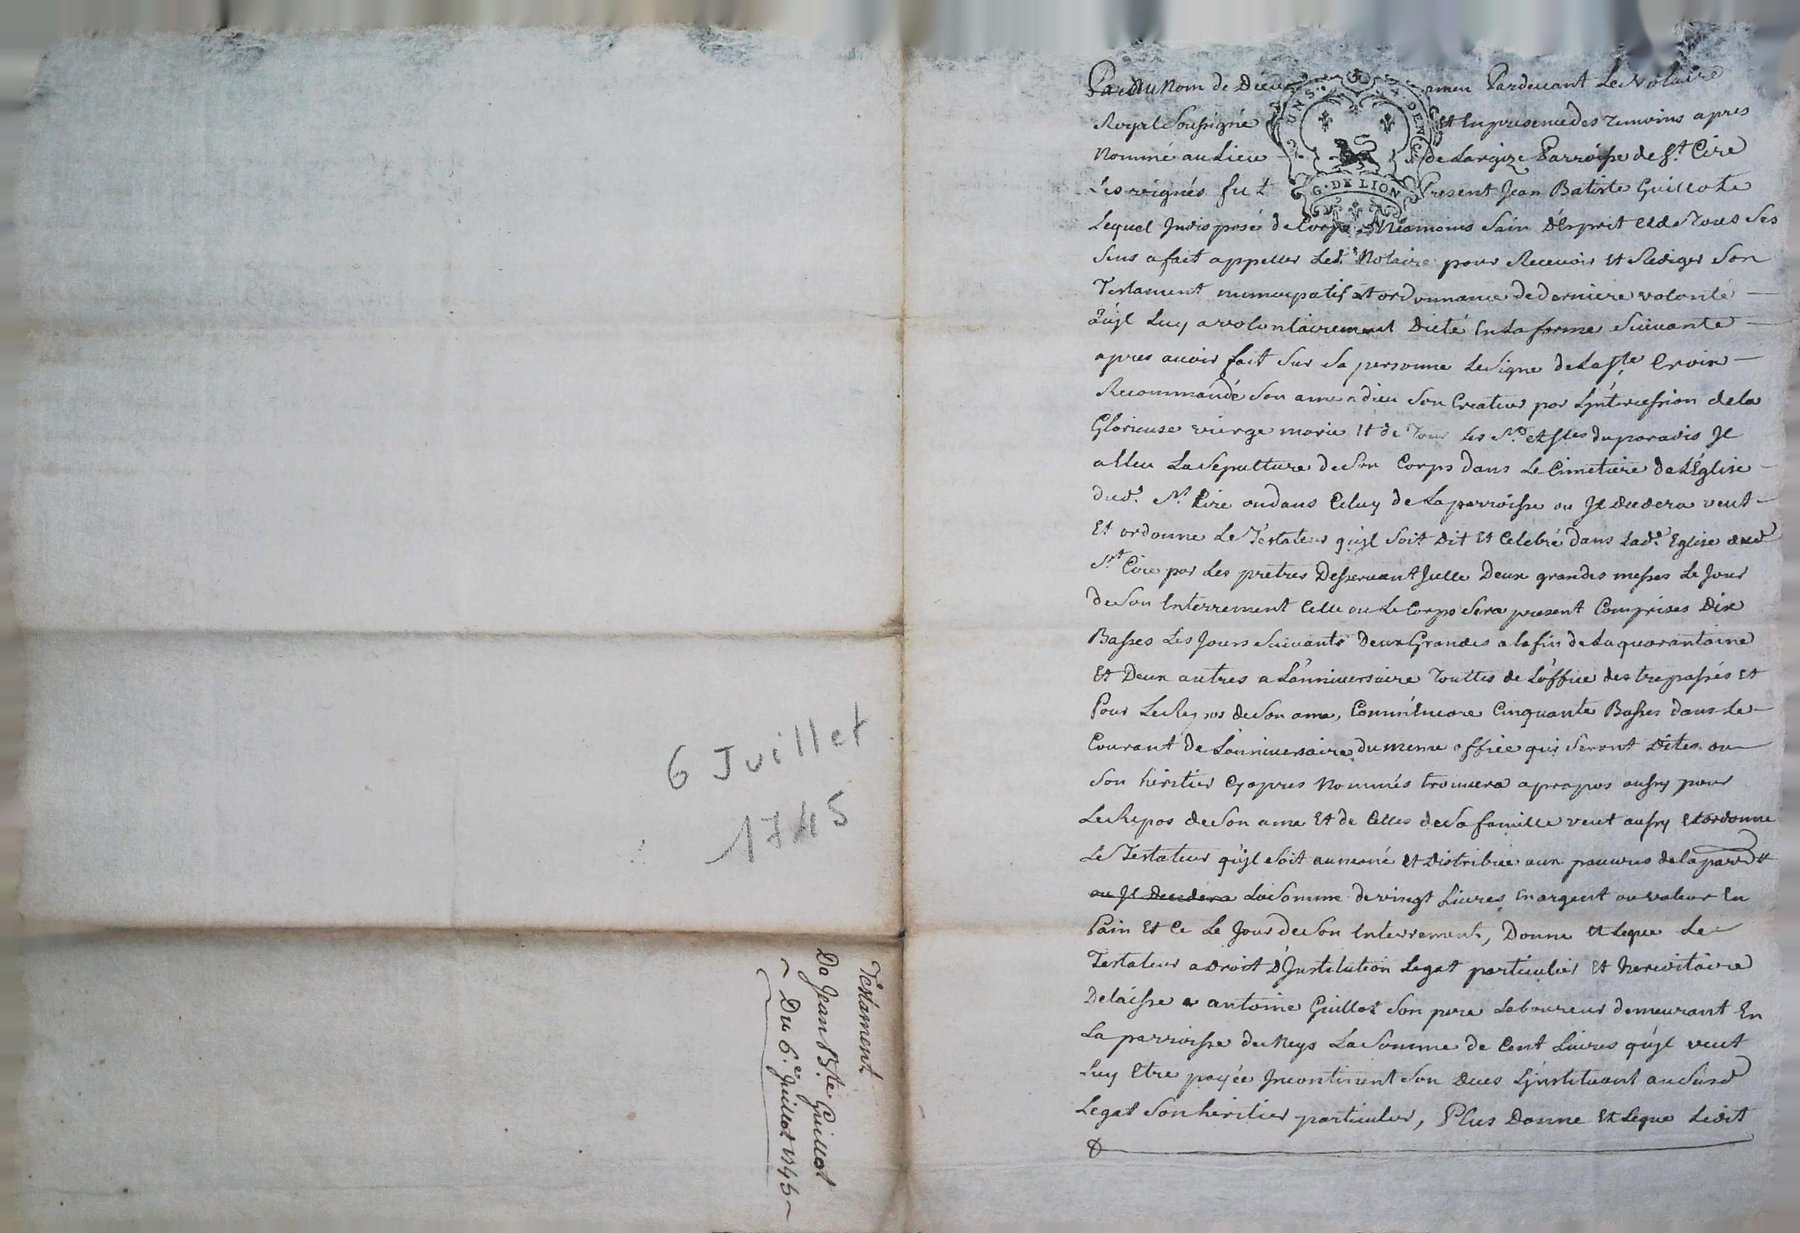 6 Juillet
1745
Testament
De Jean Bte Guillot
Du 6e Juillet 1745
Au Nom de Dieu amen Pardevant Le Notaire
Royal Soussigné et En presence des Temoins apres
Nommé au Lieu de Largize Parroisse de St Cire
Les vignés fut Present Jean Batiste Guillot Le
Lequel Indisposé de Corps Neamoins Sain D'Esprit et de Tous Ses
Sens a fait appeller Led. Notaire pour Recevoir Et Rediger Son
Testament nuncupatif Et ordonnance de derniere volonté
qu'jl Luy a volontairement Dicté En La forme Suivante
apres avoir fait Sur Sa personne Le Signe de La Ste Croix
Recommandé Son ame a dieu Son Createur par L'jntercession de la
Glorieuse vierge marie Et de Tous Les Sts et Stes du paradis Jl
a Eleu La Sepulture de Son Corps dans Le Cimetiere de L'Eglise
dud. St Cire ou dans Celuy de La parroisse ou Jl Decedera veut
Et ordonne Le Testateur qu'jl Soit Dit Et Celebré dans Lad. Eglise dud
St Cire par Les prêtres Desservant Jcelle Deux grandes messes Le Jour
de Son Enterrement Celle ou Le Corps Sera present Comprises Dix
Basses Les Jours Suivants Deux Grandes a la fin de La quarantaine
Et Deux autres a L'anniversaire Touttes de L'office des trepassés Et
Pour Le Repos de Son ame, Comm'Encore Cinquante Basses dans Le
Courant de L'anniversaire du meme office qui Seront Dites ou
Son heritier Cyapres Nommés trouvera apropos aussy pour
Le Repos de Son ame Et de Celles de Sa famille veut aussy et ordonne
Le Testateur qu'jl Soit aumoné Et Distribue aux pauvres de la par
ou Jl Decedera La Somme de vingt Livres En argent ou valeur En
Pain Et Ce Le Jour de Son Enterrement, Donne Et Legue Le
Testateur a Droit D'Jnstitution Legat particulier Et hereditaire
Delaisse a antoine Guillot Son pere Laboureur demeurant En
La parroisse de Meys La Somme de Cent Livres qu'jl veut
Luy Etre payée Jncontinent Son Deces L'jnstituant au Susd
Legat Son heritier particulier, Plus Donne Et Legue Ledit